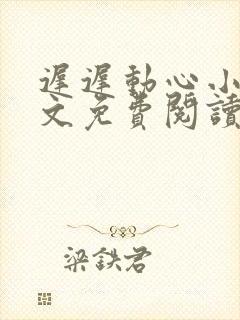 遲遲動心小
文免費閱讀
梁鉄君